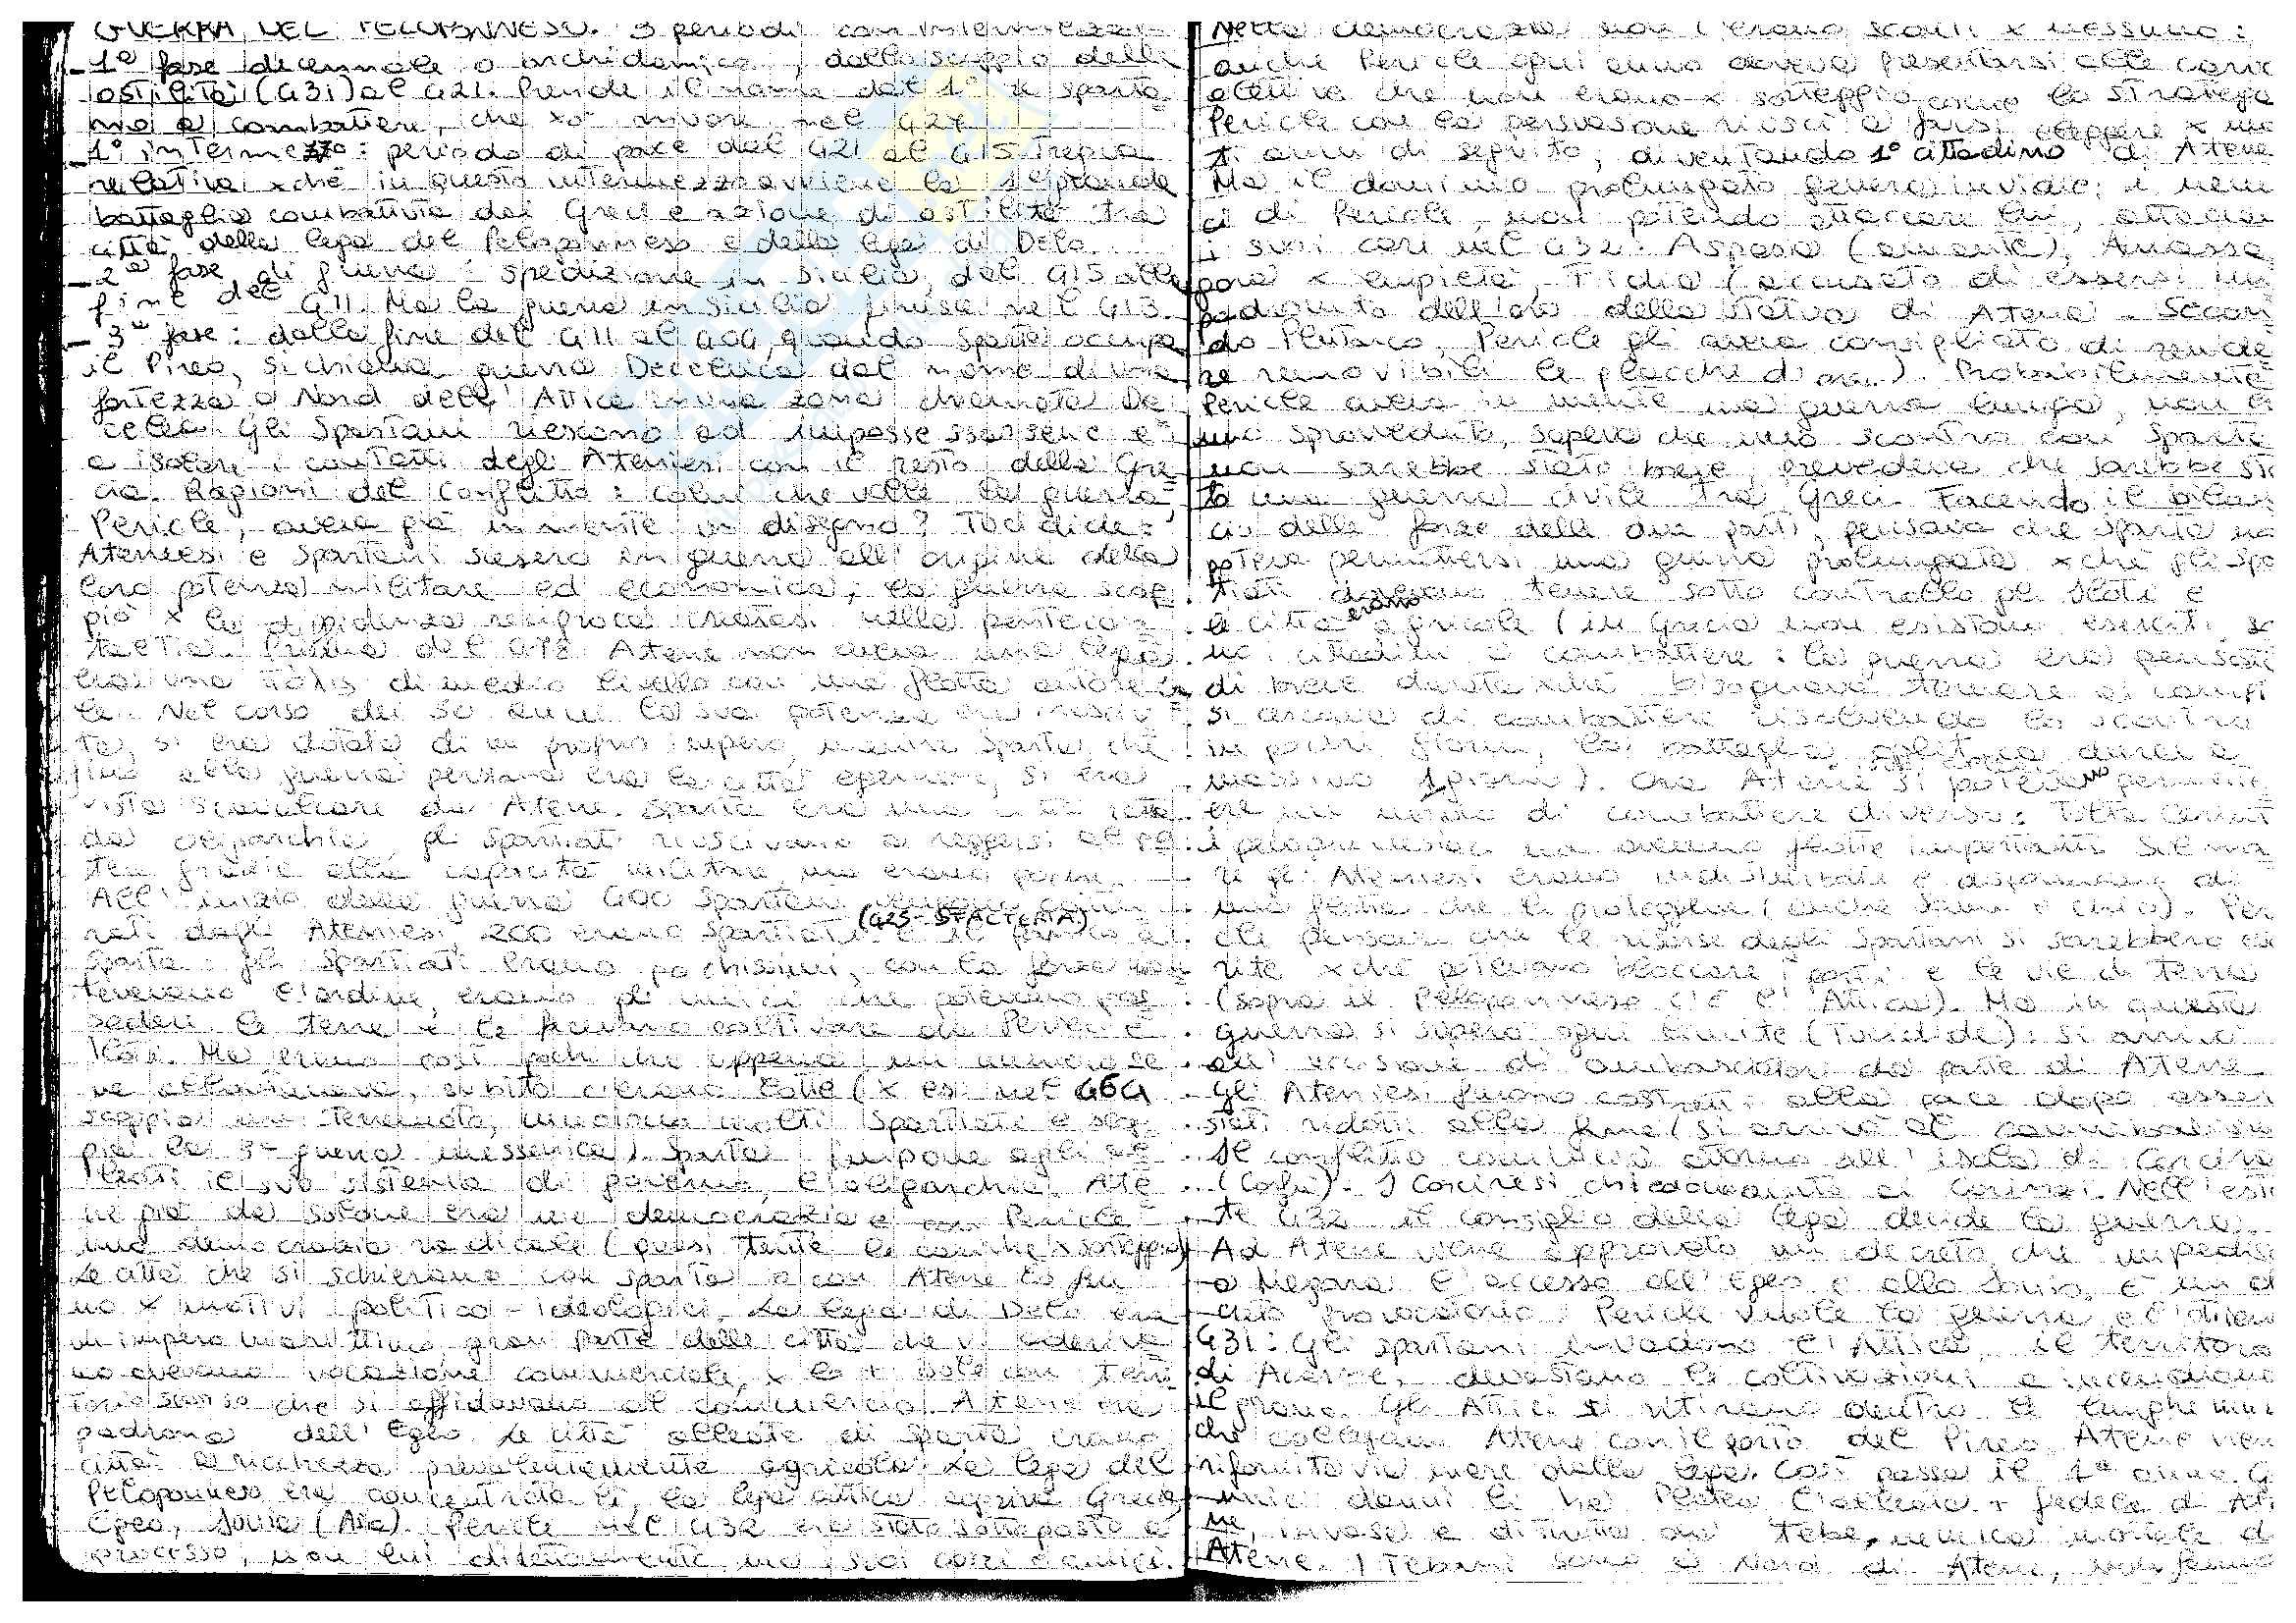 GUERRA DEL PELOPONNESO. 3 periodi con intermezzo
- 1ª fase decennale o archidamica, dallo scoppio delle
ostilità (431) al 421. Prende il nome dal 1° re sparta
no a combattere, che xò muore nel 427
- 1° intermezzo: periodo di pace dal 421 al 415 Tregua
relativa xché in questo intermezzo avviene la 1ª grande
battaglia combattuta dai Greci e azione di ostilità tra
città della lega del Peloponneso e della lega di Delo.
- 2ª fase di guerra: spedizione in Sicilia, dal 415 alla
fine del 411. Ma la guerra in Sicilia finisce nel 413.
- 3ª fase: dalla fine del 411 al 404, quando Sparta occupa
il Pireo, si chiama guerra Deceleica dal nome di una
fortezza a Nord dell'Attica in una zona chiamata De
celea. Gli Spartani riescono ad impossessarsene e
a isolare i contatti degli Ateniesi con il resto della Gre
cia. Ragioni del conflitto: colui che volle la guerra,
Pericle, aveva già in mente un disegno? Tucidide:
Ateniesi e Spartani scesero in guerra all'apice della
loro potenza militare ed economica, la guerra scop
piò x la diffidenza reciproca creatasi nella pentecon
taetia. Prima del 478 Atene non aveva una lega
era una πόλις di medio livello con una flotta
Nel corso dei 50 anni la sua potenza era
ta, si era dotata di un proprio impero, mentre Sparta, che
fino alla guerra persiana era la città egemone, si era
vista scavalcare da Atene. Sparta era una città
da oligarchia, gli spartiati riuscivano a reggersi al po
tere grazie alla capacità militare, ma erano pochi.
All'inizio della guerra 400 Spartani vengono
rati dagli Ateniesi, 200 erano Spartiati (425 - SFACTERIA) e il panico a
Sparta: gli Spartiati erano pochissimi, con la forza man
tenevano l'ordine, erano gli unici che potevano pos
sedere le terre e le facevano coltivare da Perieci e
Iloti. Ma erano così pochi che appena un
ne, subito c'erano (x es. nel 464
scoppia un terremoto, muoiono molti Spartiati e scop
pia la 3ª guerra messenica). Sparta impone agli al
leati il suo sistema di governo, l'oligarchia. Ate
ne già da Solone era una democrazia e con Pericle
una democrazia radicale (quasi tutte le cariche x sorteggio)
Le città che si schierano con Sparta o con Atene lo fan
no x motivi politico-ideologici. La lega di Delo era
un impero marittimo, gran parte delle città che vi aderiva
no avevano vocazione commerciale, x lo + isole con terri
torio scarso che si affidavano al commercio. Atene era
padrona dell'Egeo. Le città alleate di Sparta erano
città a ricchezza prevalentemente agricola. La lega del
Peloponneso era concentrata lì, la lega attica copriva Grecia,
Egeo, Ionia (Asia). Pericle nel 432 era stato sottoposto a
processo, non lui direttamente ma i suoi cari e amici.
Nella democrazia non c'erano sconti x nessuno:
anche Pericle ogni anno doveva presentarsi alle caric
elettiva che non erano x sorteggio, come lo stratego
Pericle con la persuasione riuscì a farsi eleggere x mo
ti anni di seguito, diventando 1° cittadino di Atene
Ma il dominio prolungato genera invidie: i nemi
ci di Pericle, non potendo attaccare lui, attacca
i suoi cari nel 432: Aspasia (amante), Anassa
gora x empietà, Fidia (accusato di essersi im
padronito dell'oro della statua di Atena. Secon
do Plutarco, Pericle gli aveva consigliato di rende
re removibili le placche d'oro). Probabilmente
Pericle aveva in mente una guerra lunga, non e
uno sprovveduto, sapeva che uno scontro con Sparta
non sarebbe stato breve, prevedeva che sarebbe sta
to una guerra civile tra Greci. Facendo il bilan
cio delle forze delle due parti, pensava che Sparta no
poteva permettersi una guerra prolungata xché gli Spa
tiati dovevano tenere sotto controllo gli Iloti e
le città erano agricole (in Grecia non esistono eserciti, so
no i cittadini a combattere: la guerra era pensata
di breve durata xché bisognava tornare ai campi
si cercava di combattere risolvendo lo scontro
in pochi giorni, la battaglia oplitica durava
massimo 1 giorno). Ora Atene si poteva permette
re un modo di combattere diverso:
i peloponnesiaci non avevano flotte importanti. Sul ma
re gli Ateniesi erano indisturbati e disponevano di
una flotta che li proteggeva (anche Samo e Chio). Peri
cle pensava che le risorse degli Spartani si sarebbero esau
rite xché potevano bloccare i porti e le vie di terra
(sopra il Peloponneso c'è l'Attica). Ma in questa
guerra si superò ogni limite (Tucidide): si arrivò
all'uccisione di ambasciatori da parte di Atene.
Gli Ateniesi furono costretti alla pace dopo esser
stati ridotti alla fame (si arrivò al cannibalismo
Il conflitto cominciò attorno all'isola di Corcira
(Corfù). I Corciresi chiedono aiuto ai Corinzi. Nell'esta
te 432 il consiglio della lega decide la guerra.
Ad Atene viene approvato un decreto che impedisc
a Megara l'accesso all'Egeo e allo Ionio. È un de
creto provocatorio. Pericle vuole la guerra e l'ottien
431: Gli spartani invadono l'Attica, il territorio
di Acarne, devastano le coltivazioni e incendiano
il grano. Gli Attici si ritirano dentro le lunghe mura
che collegano Atene con il porto del Pireo. Atene vien
rifornita via mare dalla lega. Così passa il 1° anno. G
unici danni li ha Platea l'alleata + fedele di Ate
ne, invasa e distrutta da Tebe, nemica mortale di
Atene. I Tebani sono a Nord di Atene, non